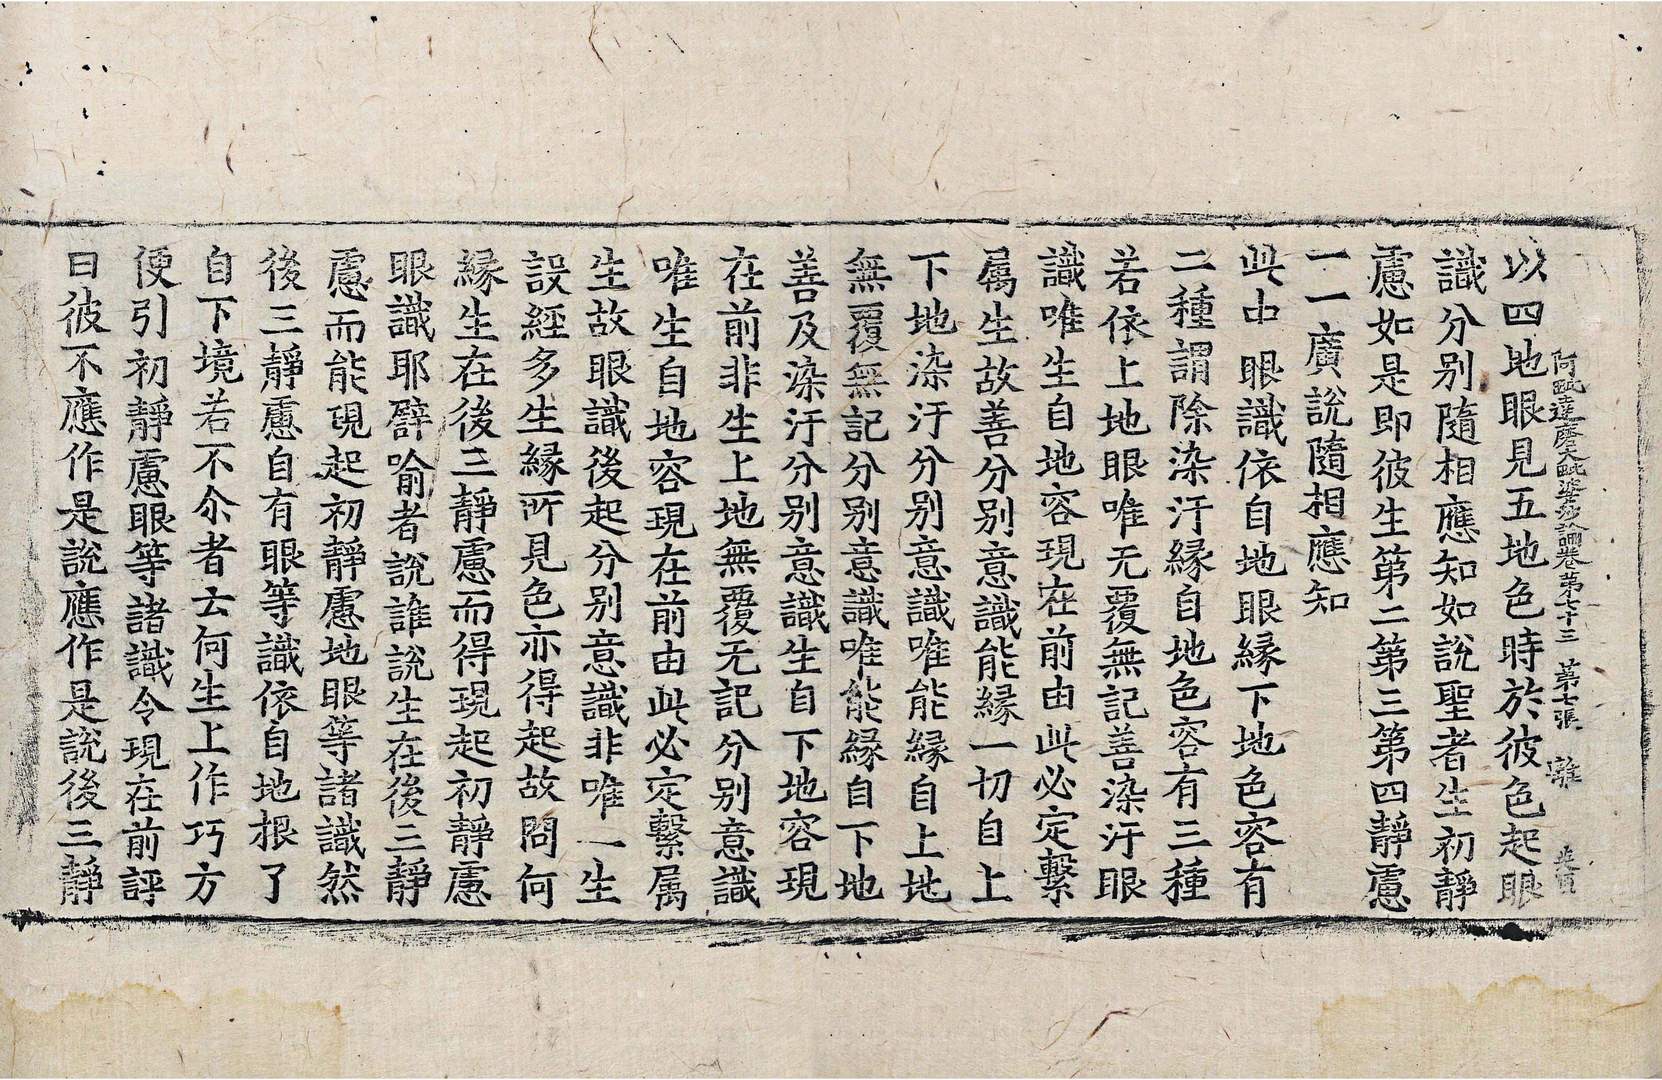 阿毗達磨大毗婆沙論卷第七十三 第七張 離
以四地眼見五地色時於彼色起眼
識分別隨相應知如說聖者生初靜
慮如是即彼生第二第三第四靜慮
一一廣說隨相應知
此中眼識依自地眼緣下地色容有
二種謂除染汙緣自地色容有三種
若依上地眼唯无覆無記善染汙眼
識唯生自地容現在前由此必定繫
屬生故善分別意識能緣一切自上
下地染汙分別意識唯能緣自上地
無覆無記分別意識唯能緣自下地
善及染汙分別意識生自下地容現
在前非生上地無覆无記分別意識
唯生自地容現在前由此必定繫属
生故眼識後起分別意識非唯一生
設經多生緣所見色亦得起故問何
緣生在後三靜慮而得現起初靜慮
眼識耶譬喻者說誰說生在後三靜
慮而能現起初靜慮地眼等諸識然
後三靜慮自有眼等識依自地根了
自下境若不尒者云何生上作巧方
便引初靜慮眼等諸識令現在前評
曰彼不應作是說應作是說後三靜